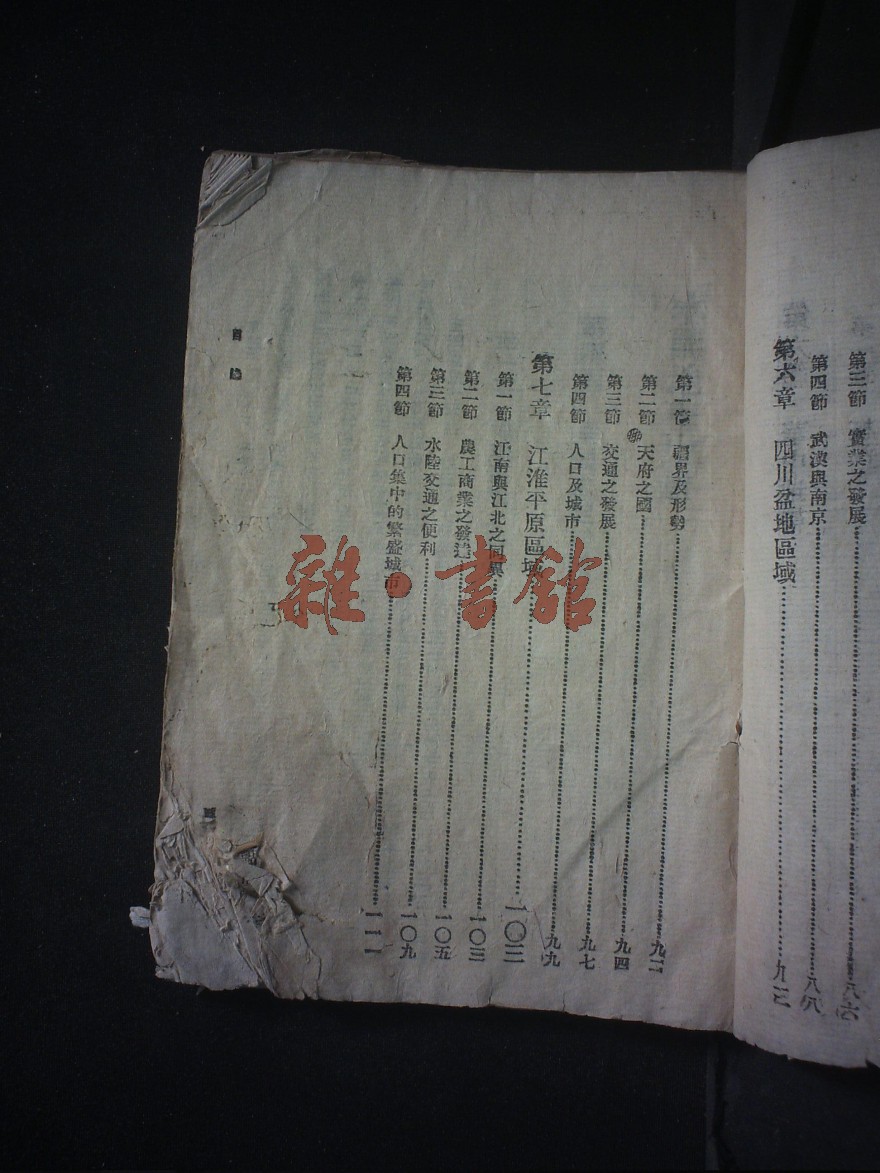 第三節 實業之發展……八六
第四節 武漢與南京……八八
第六章 四川盆地區域……九二
第一節 疆界及形勢……九二
第二節 天府之國……九四
第三節 交通之發展……九七
第四節 人口及城市……九九
第七章 江淮平原區域……一〇三
第一節 江南與江北之同異……一〇三
第二節 農工商業之發達……一〇五
第三節 水陸交通之便利……一〇九
第四節 人口集中的繁盛城市……一一一
目錄
雜·書館